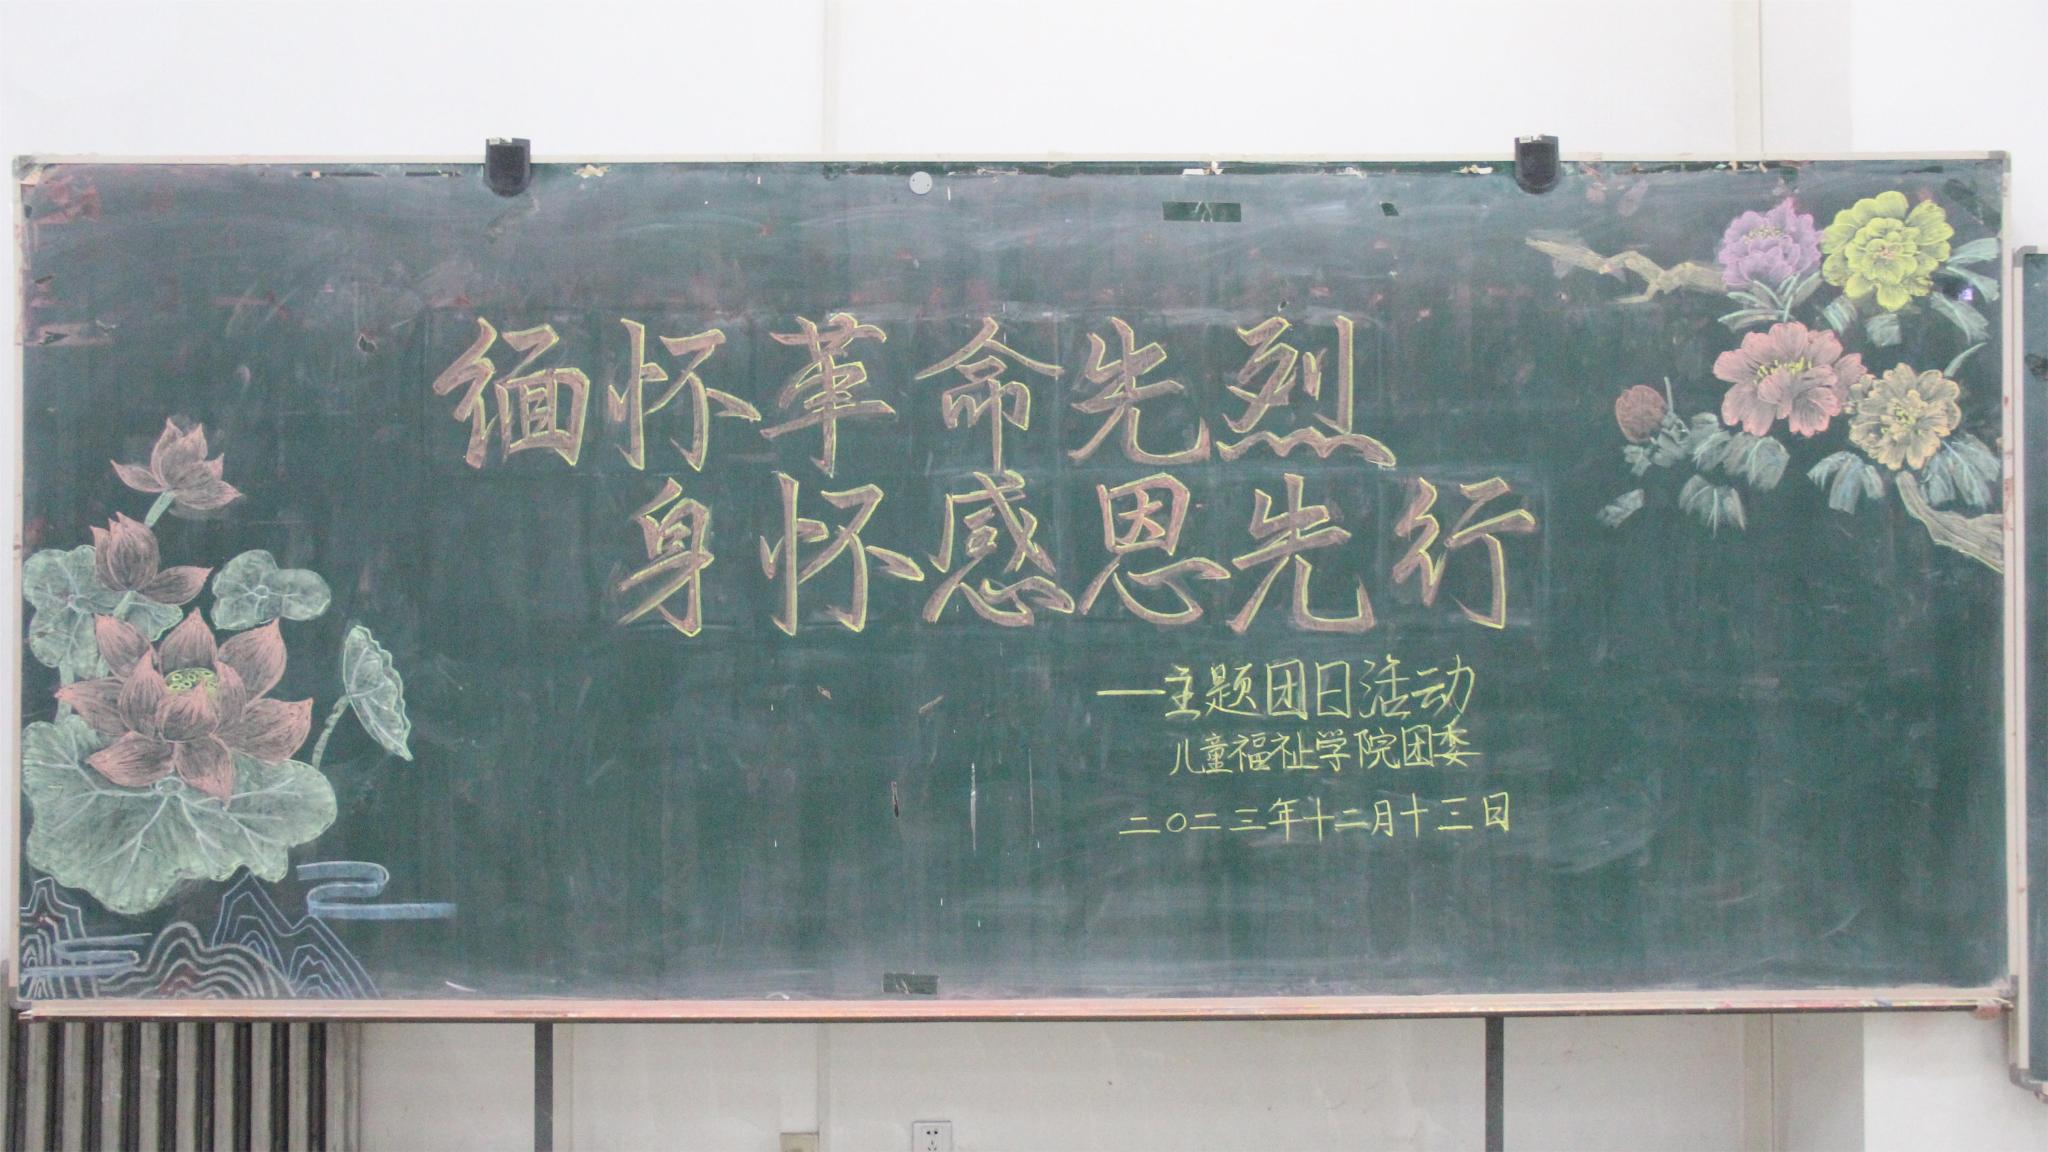 缅怀革命先烈
身怀感恩先行
—主题团日活动
儿童福祉学院团委
二〇二三年十二月十三日